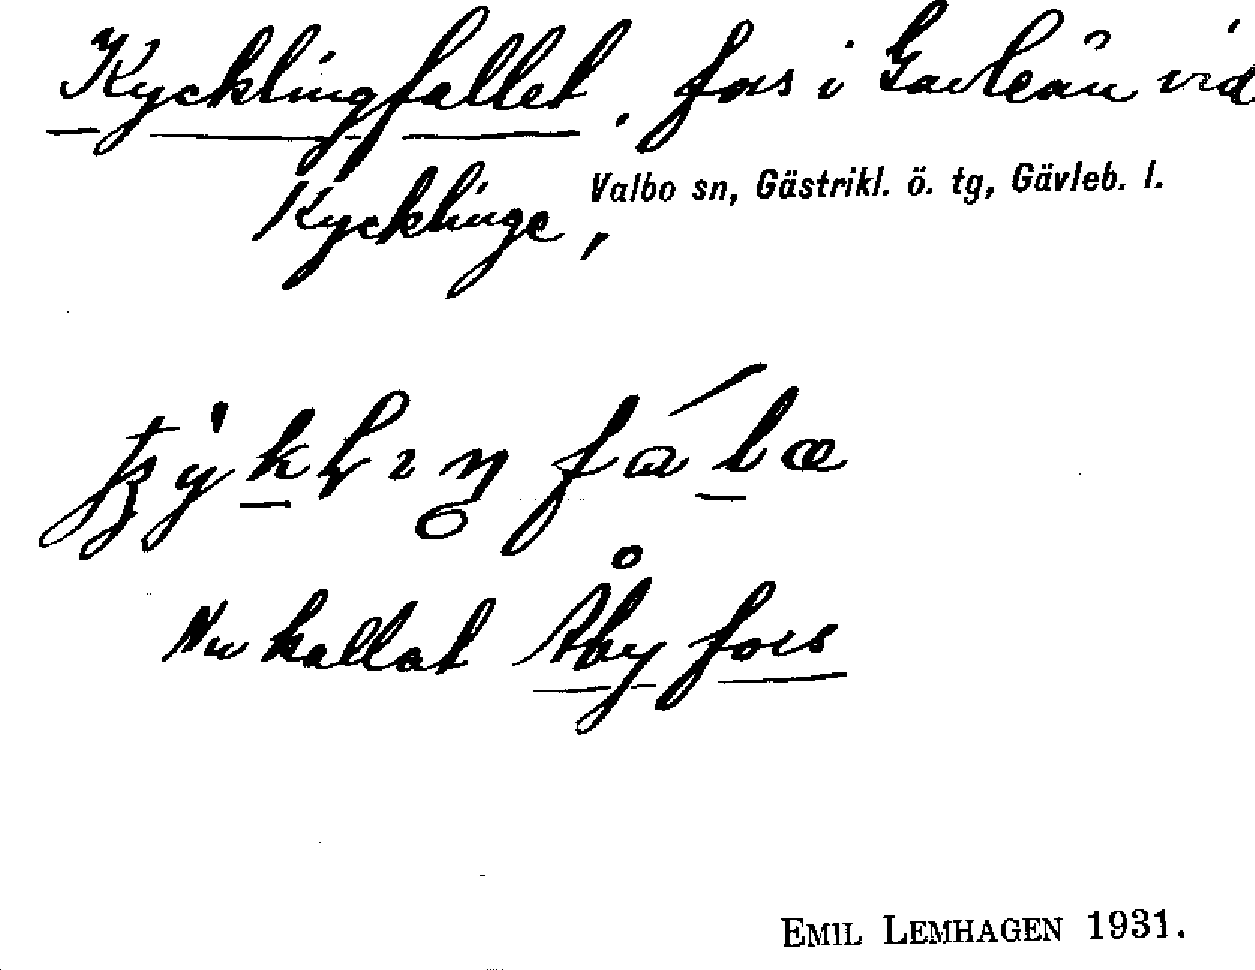 Kycklingfallet, fors i Gavleån vid
Kycklinge, Valbo sn, Gästrikl. ö. tg, Gävleb. l.
Nu kallat Åby fors
EMIL LEMHAGEN 1931.